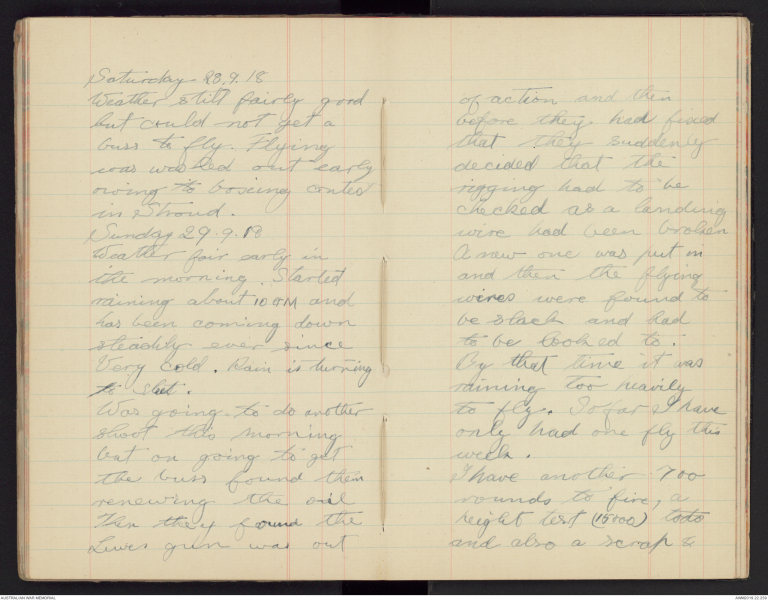 Saturday 28.9.18
Weather still fairly good
but could not get a
buss to fly. Flying
was washed out early
owing to boxing contest
in Stroud.
Sunday 29.9.18
Weather fair early in
the morning. Started
raining about 10 am and
has been coming down
steadily ever since
Very cold. Rain is turning
to sleet.
Was going to do another
shoot this morning
but on going to get
the buss found them
renewing the oil
Then they found the
Lewis gun was out
of action and then
before they had fixed
that they suddenly
decided that the
rigging had to be
checked as a landing
wire had been broken
A new one was put in
and then the flying
wires were found to
be slack and had
to be looked to.
By that time it was
raining too heavily
to fly. So far I have
only had one fly this
week.
I have another 700
rounds to fire, a
height test (15000) to do
and also a scrap &
AUSTRALIAN WAR MEMORIAL